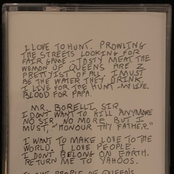 I LOVE TO HUNT. PROWLING
THE STREETS LOOKING FOR
FAIR GAME - TASTY MEAT. THE
WEMON OF QUEENS ARE Z
PRETTYIST OF ALL. I MUST
BE THE WATER THEY DRINK.
I LIVE FOR THE HUNT - MY LIFE.
BLOOD FOR PAPA.
MR. BORELLI, SIR,
I DONT WANT TO KILL ANYMORE
NO SIR, NO MORE BUT I
MUST, "HONOUR THY FATHER."
I WANT TO MAKE LOVE TO THE
WORLD. I LOVE PEOPLE.
I DON'T BELONG ON EARTH.
RETURN ME TO YAHOOS.
PEOPLE OF QUEENS